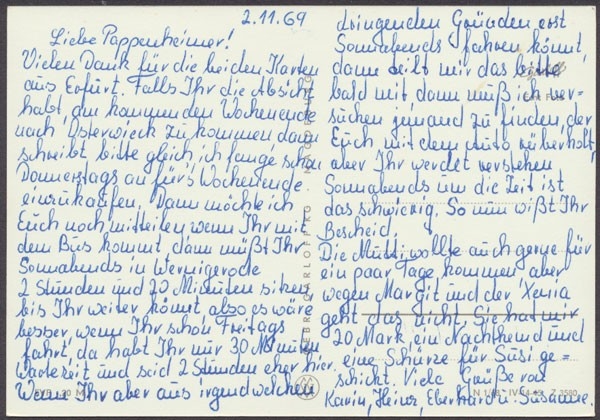 2.11.69
Liebe Pappenheimer!
Vielen Dank für die beiden Karten
aus Erfurt. Falls Ihr die Absicht
habt am kommenden Wochenende
nach Osterwieck zu kommen dann
schreibt bitte gleich, ich fange schon
Donnerstags an für's Wochenende
einzukaufen. Dann möchte ich
Euch noch mitteilen wenn Ihr mit
dem Bus kommt dann müßt Ihr
Sonnabends in Wernigerode
2 Stunden und 20 Minuten sitzen
bis Ihr weiter könnt also es wäre
besser wenn Ihr schon Freitags
fahrt, da habt Ihr nur 30 Minuten
Wartezeit und seid 2 Stunden eher hier.
Wenn Ihr aber aus irgendwelchen
dringenden Gründen erst
Sonnabends fahren könnt,
dann teilt mir das bitte
bald mit dann muß ich ver-
suchen jemand zu finden, der
Euch mit dem Auto rüberholt,
aber Ihr werdet verstehen
Sonnabends um die Zeit ist
das schwierig. So nun wißt Ihr
Bescheid.
Die Mutti wollte auch gerne für
ein paar Tage kommen aber
wegen Margit und der Xenia
geht das nicht. Sie hat mir
20 Mark, ein Nachthemd und
eine Schürze für Susi ge-
schickt. Viele Grüße von
Karin, Heinz, Eberhard u. Susanne.